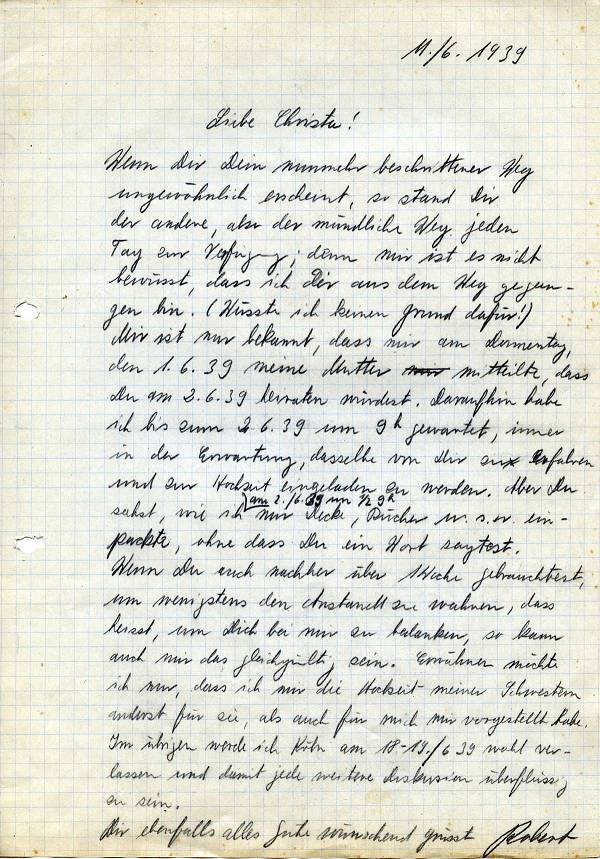 11./6. 1939
Liebe Christa!
Wenn Dir Dein nunmehr beschrittener Weg
ungewöhnlich erscheint, so stand Dir
der andere, also der mündliche Weg jeden
Tag zur Verfügung; denn mir ist es nicht
bewusst, dass ich Dir aus dem Weg gegan-
gen bin. (Wüsste ich keinen Grund dafür!)
Mir ist nur bekannt, dass mir am Donnerstag,
den 1.6.39 meine Mutter mir mitteilte, dass
Du am 2.6.39 heiraten würdest. Daraufhin habe
ich bis zum 2.6.39 um 9h gewartet, immer
in der Erwartung, dasselbe von Dir zu erfahren
und zur Hochzeit eingeladen zu werden. Aber Du
am 2./6.39 um ½ 9h
sahst, wie ich mir Decke, Bücher u.s.w. ein-
packte, ohne dass Du ein Wort sagtest.
Wenn Du auch nachher über 1 Woche gebrauchtest,
um wenigstens den Anstand zu wahren, dass
heisst, um Dich bei mir zu bedanken, so kann
auch mir das gleichgültig sein. Erwähnen möchte
ich nur, dass ich mir die Hochzeit meiner Schwestern
anderst für sie, als auch für mich mir vorgestellt habe.
Im übrigen werde ich Köln am 18-19./6 39 wohl ver-
lassen und damit jede weitere Diskusion überflüssig
zu sein.
Dir ebenfalls alles Gute wünschend grüsst Robert